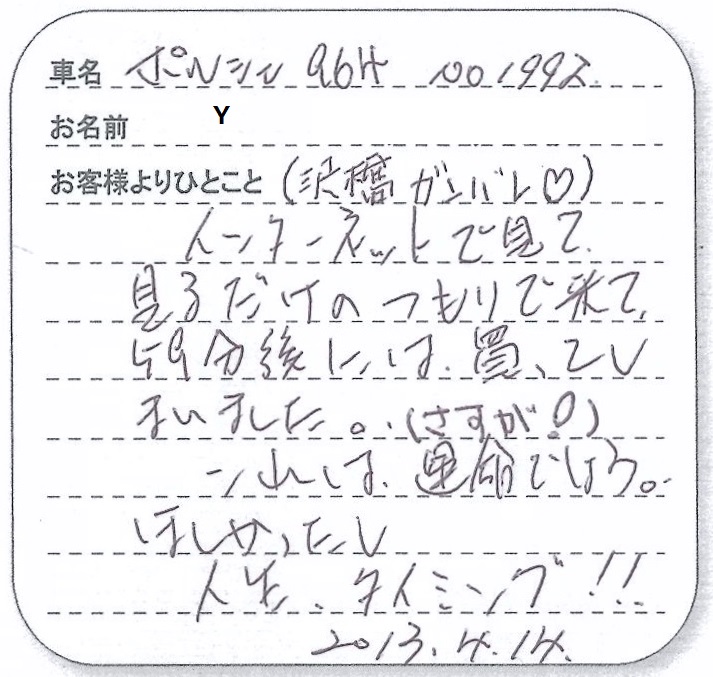 車名 ポルシェ 964 no 1992
お名前 Y
お客様よりひとこと (沢橋 ガンバレ♡)
インターネットで見て、
見るだけのつもりで来て、
59分後には、買ってし
まいました。(さすが!)
これは、運命でしょう。
ほしかったし
人生、タイミング!!
2013.4.14.